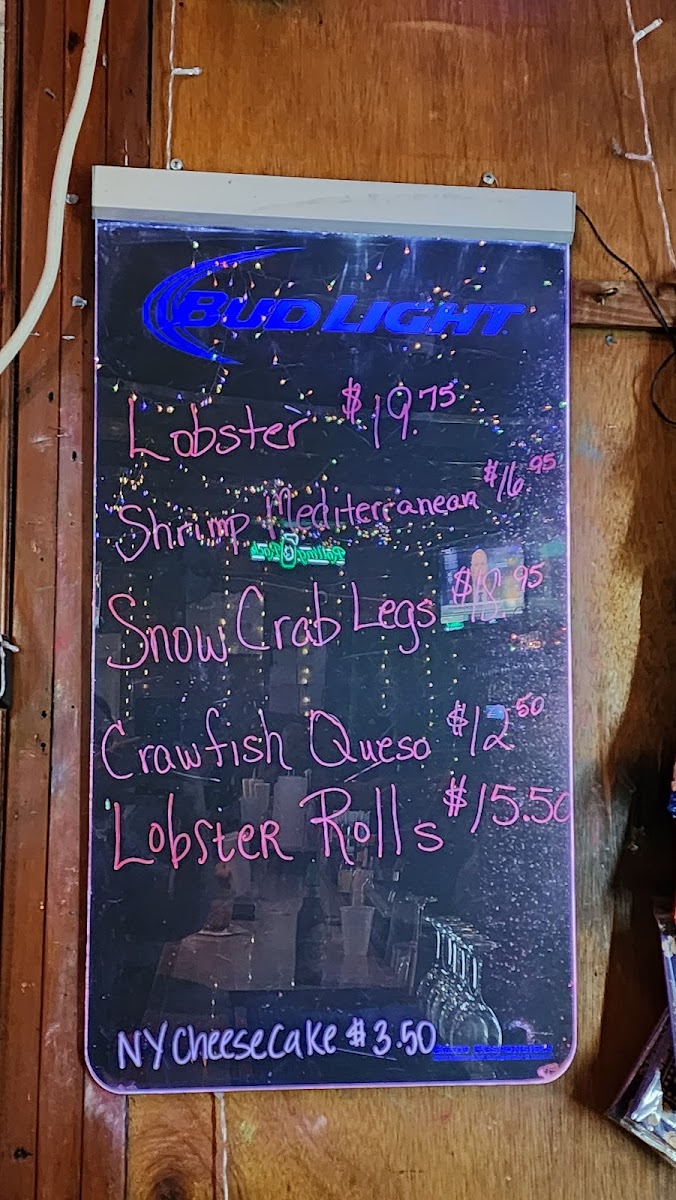 BUD LIGHT
Lobster $19.75
Shrimp Mediterranean $16.95
Snow Crab Legs $18.95
Crawfish Queso $12.50
Lobster Rolls $15.50
NY Cheesecake $3.50
Rolling Rock